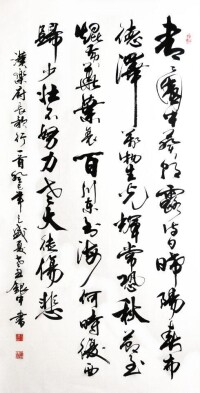 青々園中葵朝露待日晞陽春布
德澤萬物生光輝常恐秋節至
焜黃華葉衰百川東到海何時復西
歸少壯不努力老大徒傷悲
漢樂府長歌行一首癸巳年之盛夏書